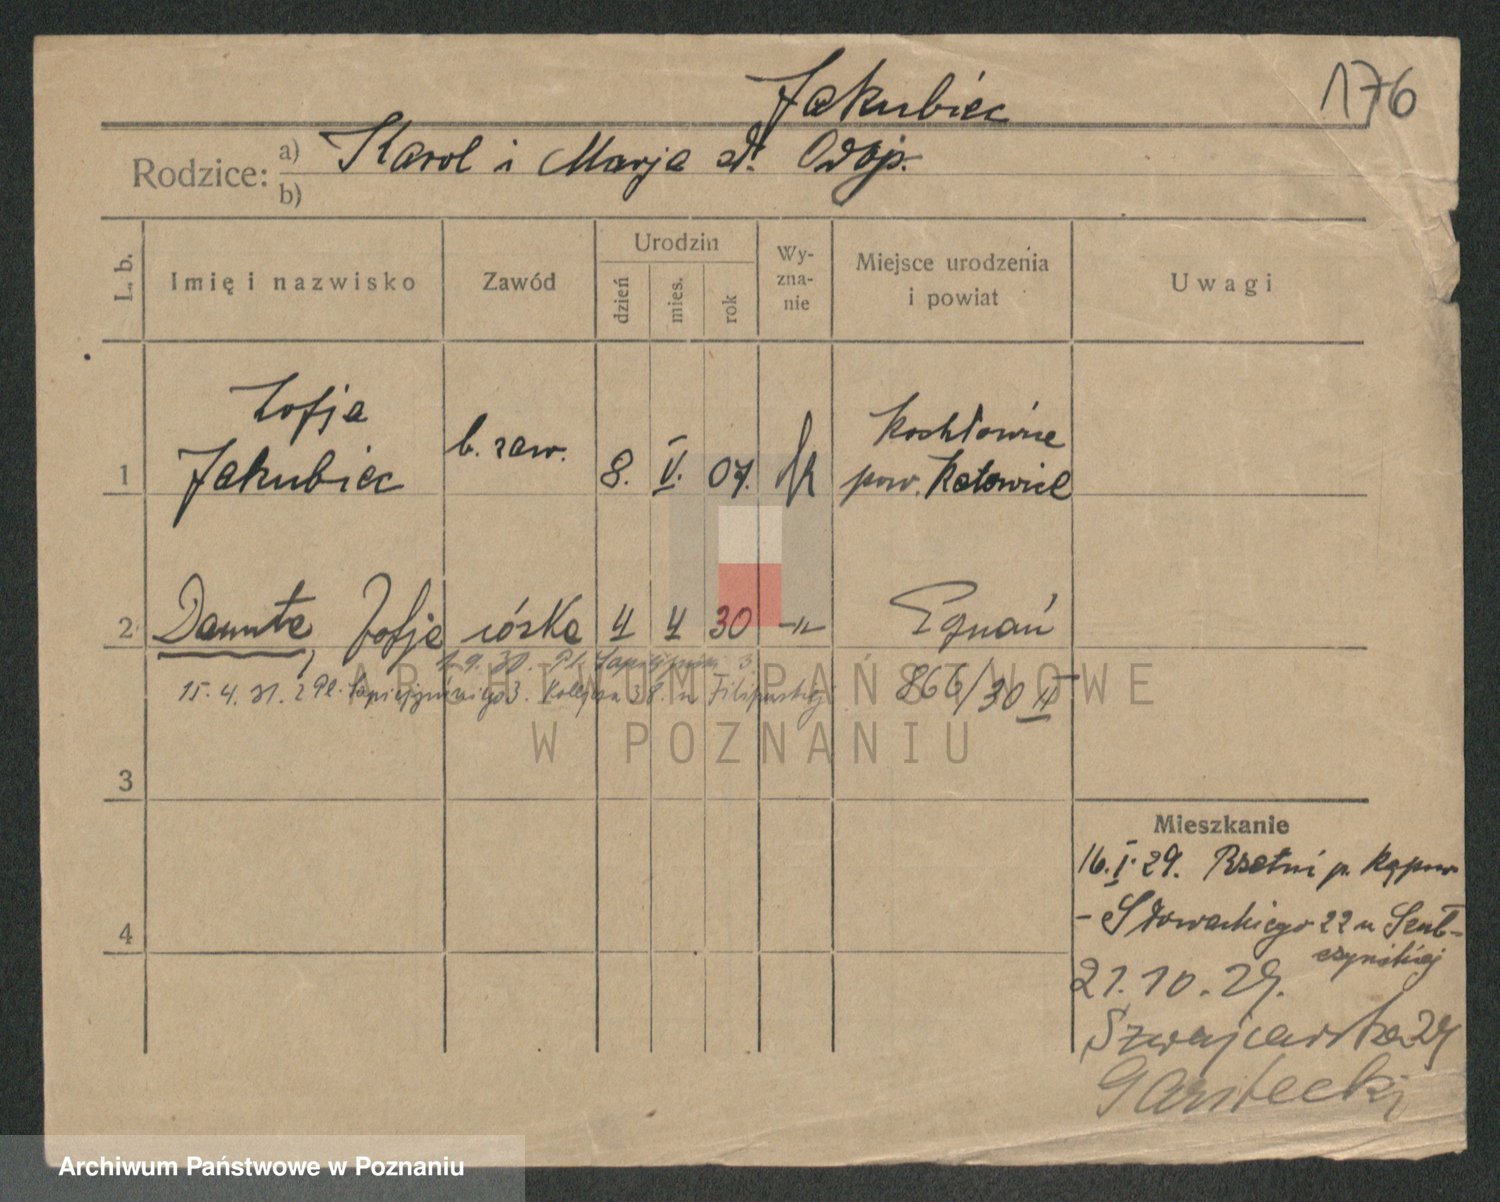 Jakubiec
176
Rodzice: a) Karol i Marja
b)
L. b.
Imię i nazwisko
Zawód
Urodzin
dzień
mies.
rok
Wy-
zna-
nie
Miejsce urodzenia
i powiat
Uwagi
1
Zofja
Jakubiec
b. zaw.
8. V. 07.
Kochłowice
pow. Katowice
2
Danuta, Zofja
córka
4 4 30
-„-
Pznań
1.9.30. Pl. Sapieżyński 3
15. 4. 31. Pl. Sapieżyńskiego 3.
866/30 II
3
4
Mieszkanie
16. I. 29.
- Słowackiego 22 u
21. 10. 29.
Szwajcarska 29
Garstecki
ARCHIWUM PAŃSTWOWE
W POZNANIU
Archiwum Państwowe w Poznaniu